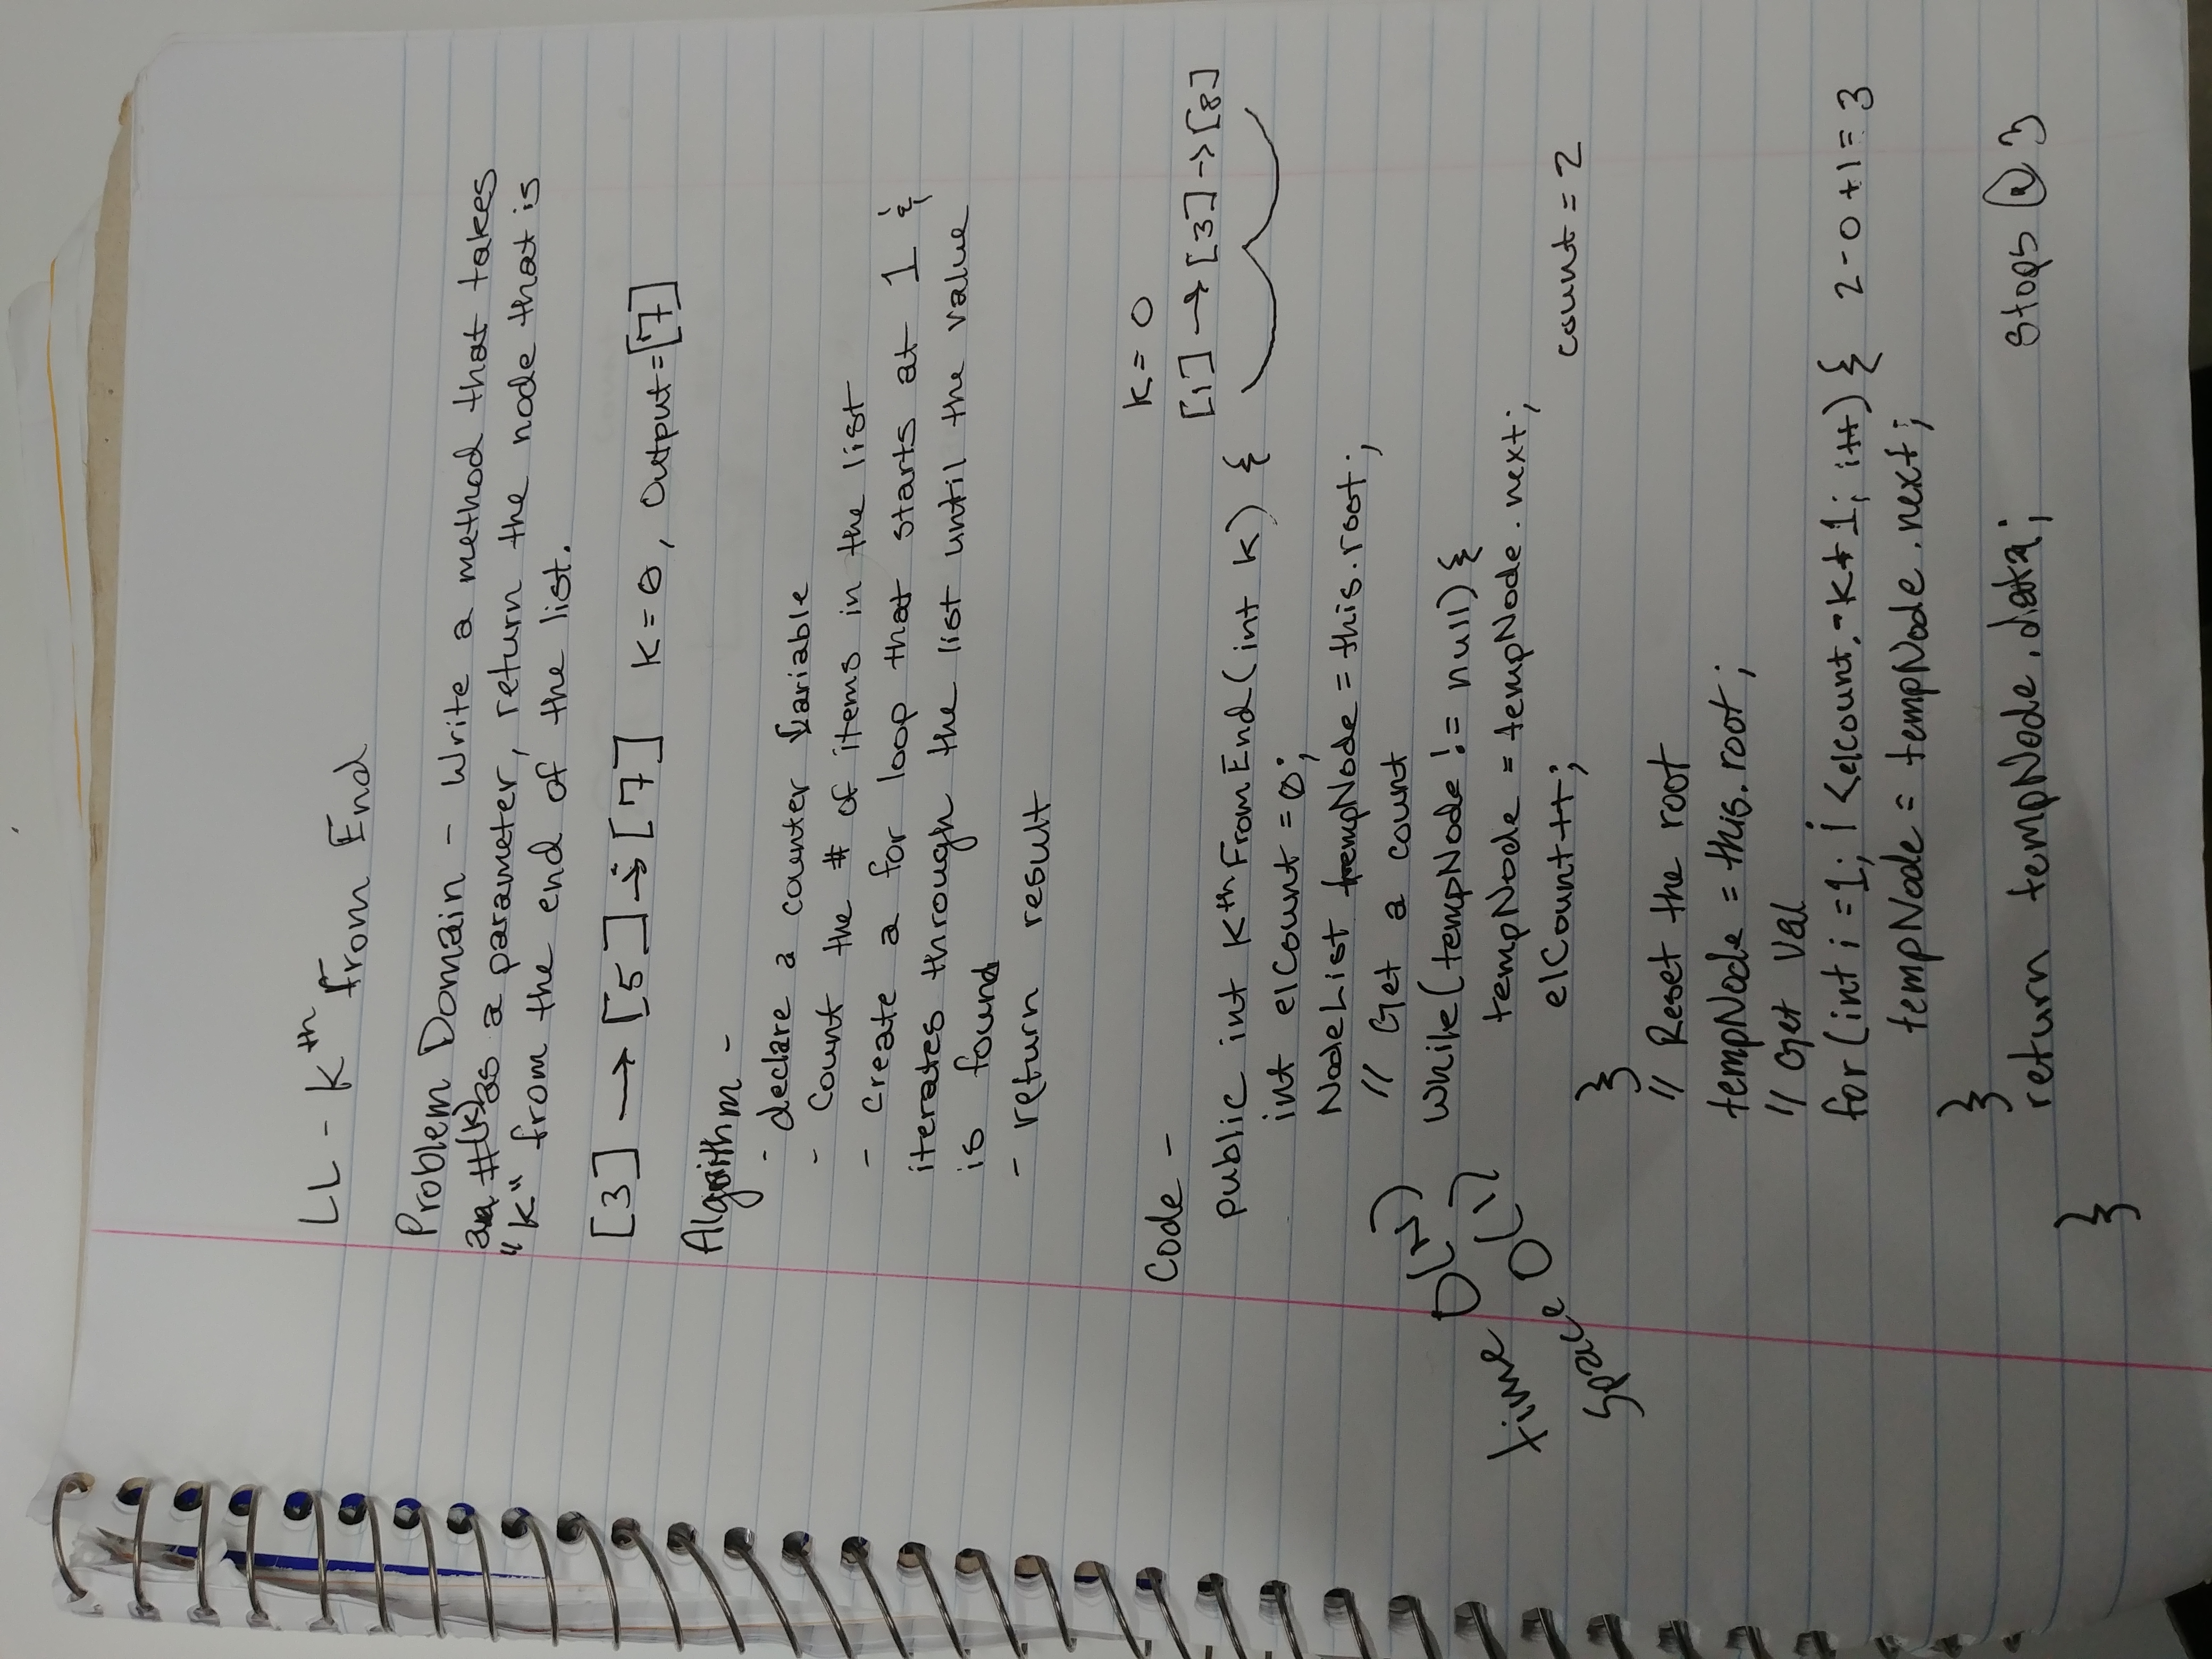 LL - Kth From End
Problem Domain - Write a method that takes
a #(k) as a parameter, return the node that is
"K" from the end of the list.
[3] → [5] → [7] K = 0, Output = [7]
Algorithm -
- declare a counter variable
- Count the # of items in the list
- Create a for loop that starts at 1 &
iterates through the list until the value
is found
- return result
K = 0
[1] → [3] -> [8]
Code -
public int KthFromEnd(int K) {
int elCount = 0;
NodeList tempNode = this.root;
// Get a count
While(tempNode != null) {
tempNode = tempNode.next;
elCount++;
count = 2
}
time O(N)
Space O(1)
// Reset the root
tempNode = this.root;
// Get Val
for (int i = 1; i < elcount - K + 1; i++) { 2 - 0 + 1 = 3
tempNode = tempNode.next;
}
return tempNode.data; Stops @ 3
}